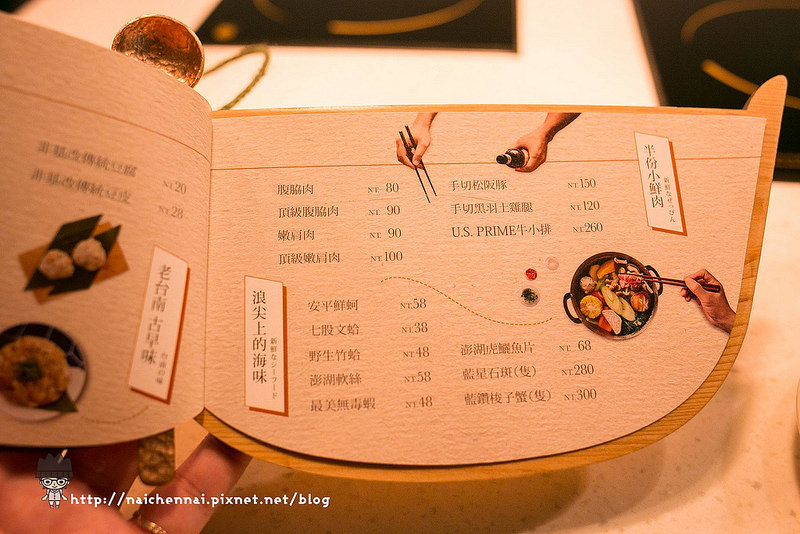 非基改傳統豆腐 NT.20
非基改傳統豆皮 NT.28
老台南 古早味
台南の味
半份小鮮肉
新鮮なぜっぴん
腹脇肉 NT. 80
頂級腹脇肉 NT. 90
嫩肩肉 NT. 90
頂級嫩肩肉 NT.100
手切松阪豚 NT.150
手切黑羽土雞腿 NT.120
U.S. PRIME牛小排 NT.260
浪尖上的海味
新鮮なシーフード
安平鮮蚵 NT.58
七股文蛤 NT.38
野生竹蛤 NT.48
澎湖軟絲 NT.58
最美無毒蝦 NT.48
澎湖虎鱺魚片 NT. 68
藍星石斑(隻) NT.280
藍鑽梭子蟹(隻) NT.300
http://naichennai.pixnet.net/blog